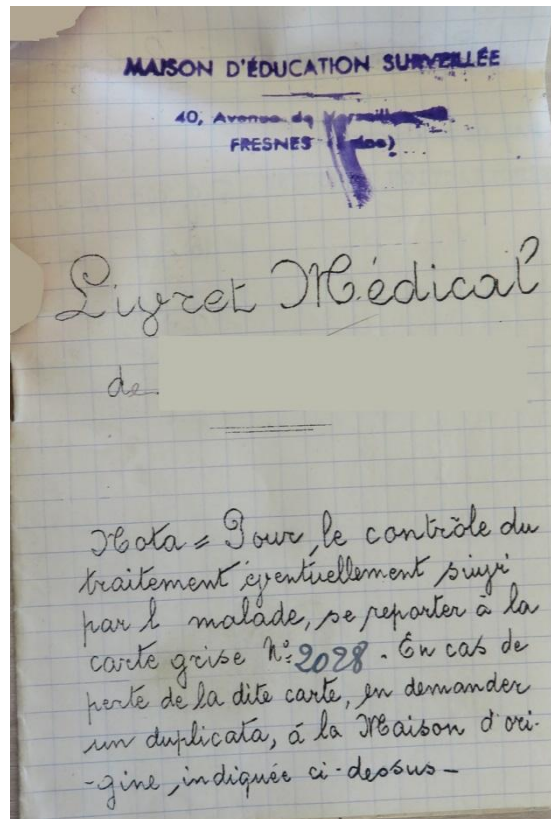 MAISON D'ÉDUCATION SURVEILLÉE
40, Avenue de Versailles
FRESNES
Livret Médical
de
Nota = Pour le contrôle du
traitement éventuellement suivi
par l malade, se reporter à la
carte grise N° 2028. En cas de
perte de la dite carte, en demander
un duplicata, à la Maison d'ori-
-gine, indiquée ci-dessus-